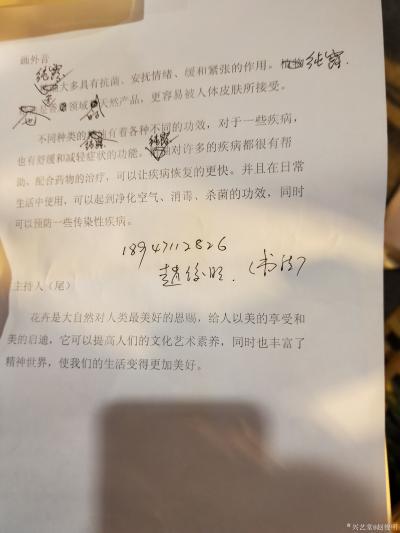 画外音
纯露大多具有抗菌、安抚情绪、缓和紧张的作用。植物纯露
也是 领域 的天然产品，更容易被人体皮肤所接受。
不同种类的纯露有着各种不同的功效，对于一些疾病，
也有舒缓和减轻症状的功能。纯露对许多的疾病都很有帮
助，配合药物的治疗，可以让疾病恢复的更快。并且在日常
生活中使用，可以起到净化空气、消毒、杀菌的功效，同时
可以预防一些传染性疾病。
18947112826
赵 （书法）
主持人（尾）
花卉是大自然对人类最美好的恩赐，给人以美的享受和
美的启迪，它可以提高人们的文化艺术素养，同时也丰富了
精神世界，使我们的生活变得更加美好。
兴艺堂@赵俊明